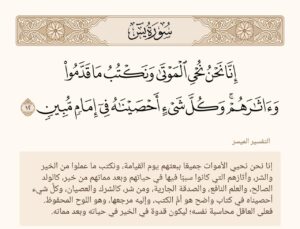 سُورَةُ يسٓ
إِنَّا نَحۡنُ نُحۡيِ ٱلۡمَوۡتَىٰ وَنَكۡتُبُ مَا قَدَّمُواْ
وَءَاثَٰرَهُمۡۚ وَكُلَّ شَيۡءٍ أَحۡصَيۡنَٰهُ فِيٓ إِمَامٖ مُّبِينٖ ١٢
التفسير الميسر
إنا نحن نحيي الأموات جميعًا ببعثهم يوم القيامة، ونكتب ما عملوا من الخير
والشر، وآثارهم التي كانوا سببًا فيها في حياتهم وبعد مماتهم من خير، كالولد
الصالح، والعلم النافع، والصدقة الجارية، ومن شر، كالشرك والعصيان، وكلَّ شيء
أحصيناه في كتاب واضح هو أمُّ الكتب، وإليه مرجعها، وهو اللوح المحفوظ.
فعلى العاقل محاسبة نفسه؛ ليكون قدوة في الخير في حياته وبعد مماته.